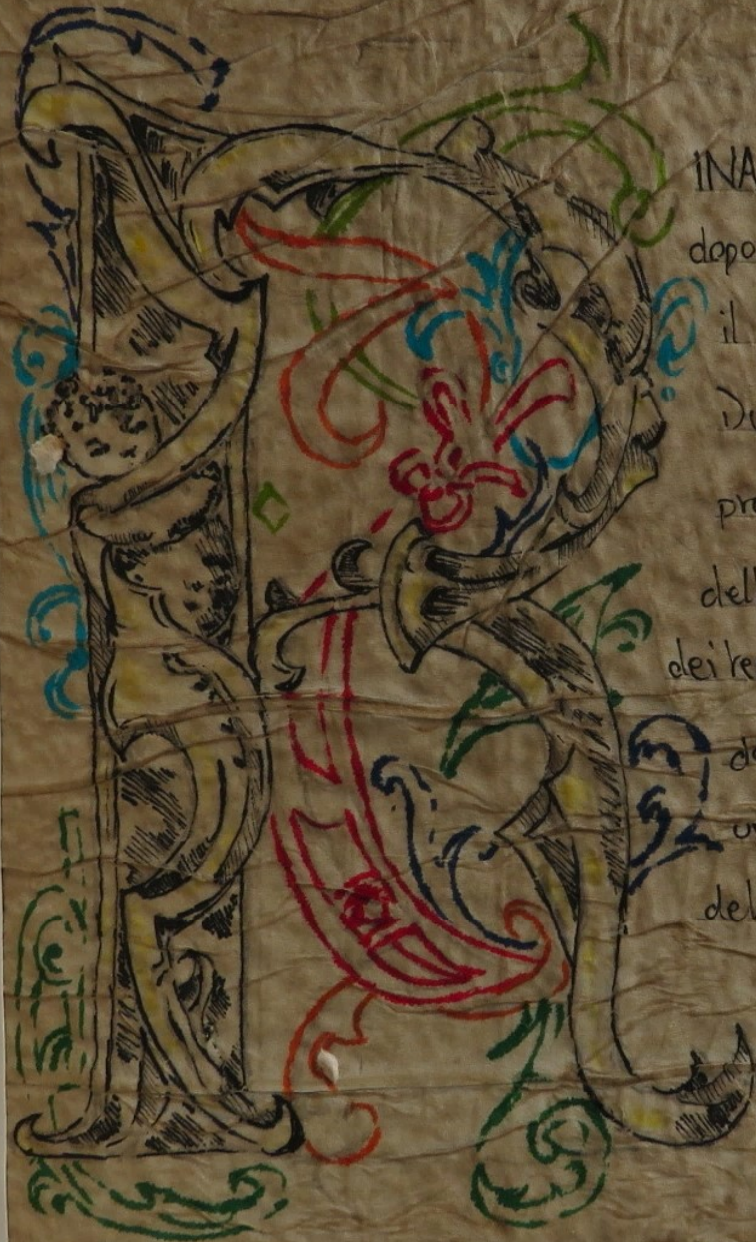 R
INA
dopo
il
D
pr
dell
dei te
d
u
del